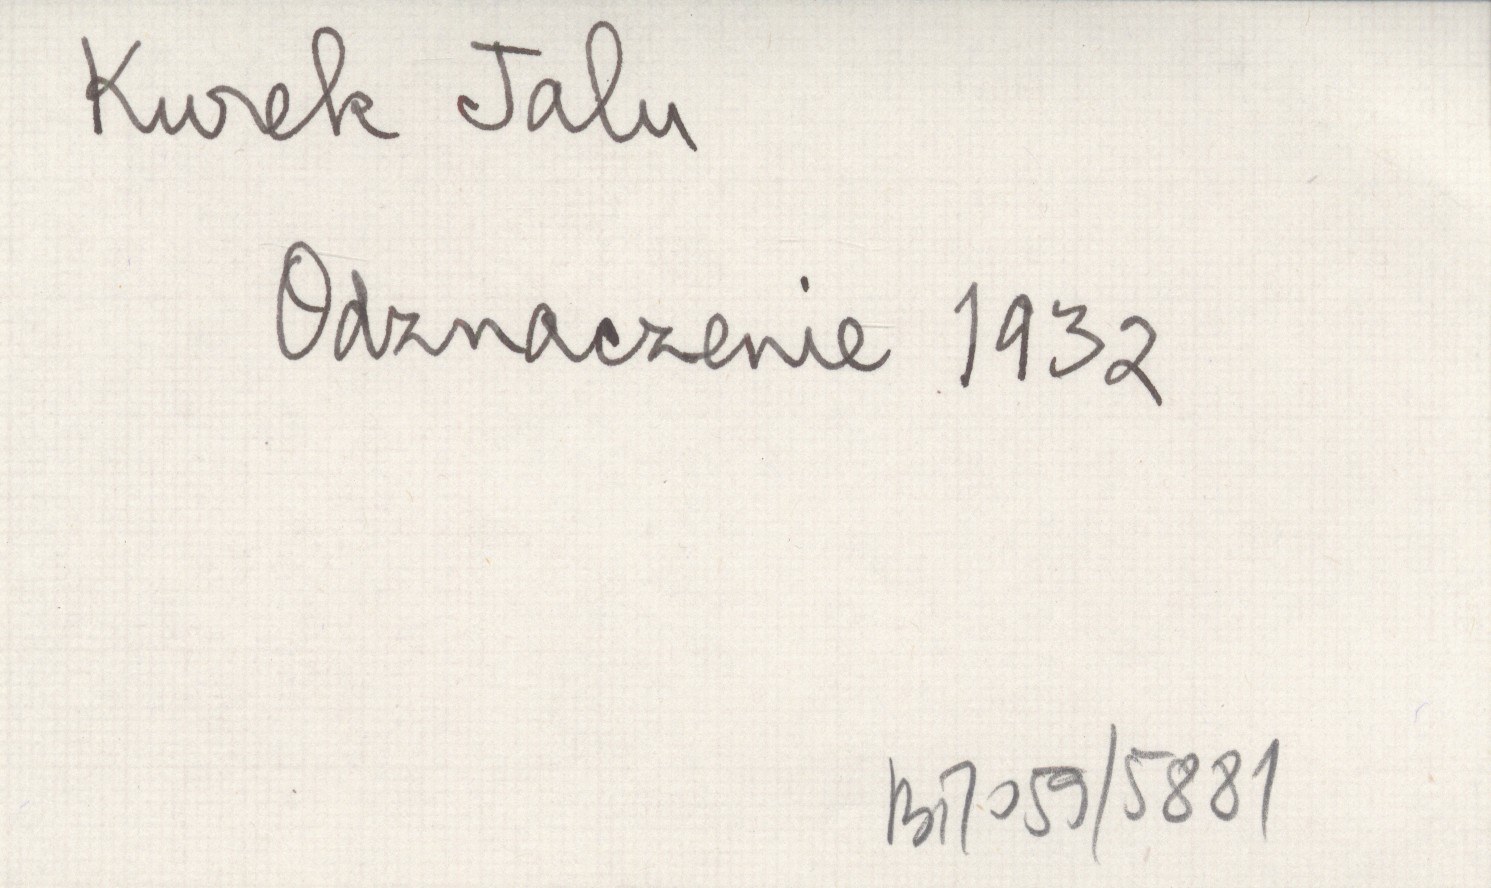 Kurek Jalu
Odznaczenie 1932
Bi7059/5881